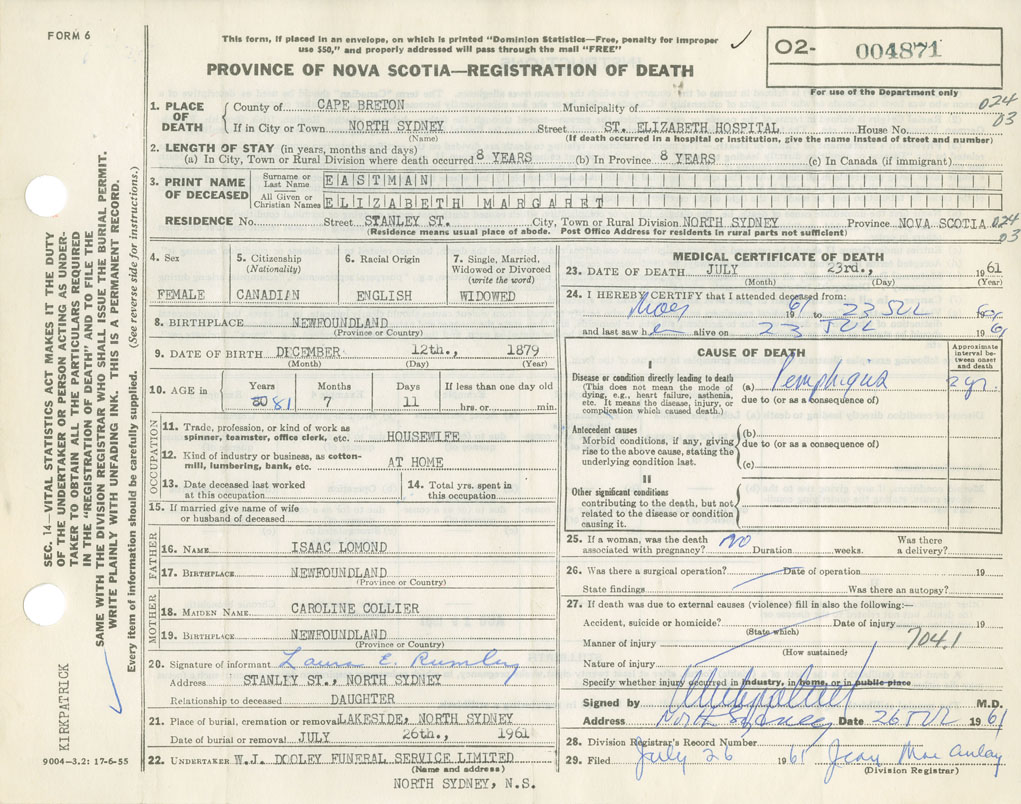 FORM 6
This form, if placed in an envelope, on which is printed "Dominion Statistics—Free, penalty for improper
use $50," and properly addressed will pass through the mail "FREE"
✓
O2- 004871
For use of the Department only
PROVINCE OF NOVA SCOTIA—REGISTRATION OF DEATH
1. PLACE OF DEATH
County of CAPE BRETON Municipality of
024
03
If in City or Town NORTH SYDNEY Street ST. ELIZABETH HOSPITAL House No.
(Name) (If death occurred in a hospital or institution, give the name instead of street and number)
2. LENGTH OF STAY (in years, months and days)
(a) In City, Town or Rural Division where death occurred 8 YEARS (b) In Province 8 YEARS (c) In Canada (if immigrant)
3. PRINT NAME OF DECEASED
Surname or Last Name EASTMAN
All Given or Christian Names ELIZABETH MARGARET
RESIDENCE No. Street STANLEY ST. City, Town or Rural Division NORTH SYDNEY Province NOVA SCOTIA 024
03
(Residence means usual place of abode. Post Office Address for residents in rural parts not sufficient)
4. Sex
FEMALE
5. Citizenship
(Nationality)
CANADIAN
6. Racial Origin
ENGLISH
7. Single, Married,
Widowed or Divorced
(write the word)
WIDOWED
8. BIRTHPLACE NEWFOUNDLAND
(Province or Country)
9. DATE OF BIRTH DECEMBER 12th., 1879
(Month) (Day) (Year)
10. AGE in
Years Months Days If less than one day old
80 81 7 11 hrs. or min.
OCCUPATION
11. Trade, profession, or kind of work as
spinner, teamster, office clerk, etc. HOUSEWIFE
12. Kind of industry or business, as cotton-
mill, lumbering, bank, etc. AT HOME
13. Date deceased last worked
at this occupation
14. Total yrs. spent in
this occupation
15. If married give name of wife
or husband of deceased
FATHER
16. NAME ISAAC LOMOND
17. BIRTHPLACE NEWFOUNDLAND
(Province or Country)
MOTHER
18. MAIDEN NAME CAROLINE COLLIER
19. BIRTHPLACE NEWFOUNDLAND
(Province or Country)
20. Signature of informant Laura E.
Address STANLEY ST., NORTH SYDNEY
Relationship to deceased DAUGHTER
21. Place of burial, cremation or removal LAKESIDE, NORTH SYDNEY
Date of burial or removal JULY 26th., 1961
22. UNDERTAKER W.J. DOOLEY FUNERAL SERVICE LIMITED
(Name and address)
NORTH SYDNEY, N.S.
MEDICAL CERTIFICATE OF DEATH
23. DATE OF DEATH JULY 23rd., 1961
(Month) (Day) (Year)
24. I HEREBY CERTIFY that I attended deceased from:
1961 to 23 JUL
and last saw her alive on 23 JUL 1961
CAUSE OF DEATH
Approximate
interval be-
tween onset
and death
I
Disease or condition directly leading to death
(This does not mean the mode of
dying, e.g., heart failure, asthenia,
etc. It means the disease, injury, or
complication which caused death.)
(a) Pemphigus 2 yr.
due to (or as a consequence of)
Antecedent causes
Morbid conditions, if any, giving
rise to the above cause, stating the
underlying condition last.
(b)
due to (or as a consequence of)
(c)
II
Other significant conditions
contributing to the death, but not
related to the disease or condition
causing it.
25. If a woman, was the death
associated with pregnancy? NO Duration weeks. Was there
a delivery?
26. Was there a surgical operation? Date of operation 19
State findings Was there an autopsy?
27. If death was due to external causes (violence) fill in also the following:—
Accident, suicide or homicide? Date of injury 19
(State which)
704.1
Manner of injury
(How sustained)
Nature of injury
Specify whether injury occurred in industry, in home, or in public place
Signed by M.D.
Address North Sydney Date 26 JUL 1961
28. Division Registrar's Record Number
29. Filed July 26 1961 Jean MacAulay
(Division Registrar)
SEC. 14—VITAL STATISTICS ACT MAKES IT THE DUTY
OF THE UNDERTAKER OR PERSON ACTING AS UNDER-
TAKER TO OBTAIN ALL THE PARTICULARS REQUIRED
IN THE "REGISTRATION OF DEATH" AND TO FILE THE
SAME WITH THE DIVISION REGISTRAR WHO SHALL ISSUE THE BURIAL PERMIT.
WRITE PLAINLY WITH UNFADING INK. THIS IS A PERMANENT RECORD.
Every item of Information should be carefully supplied. (See reverse side for instructions.)
KIRKPATRICK
9004-3.2: 17-6-55